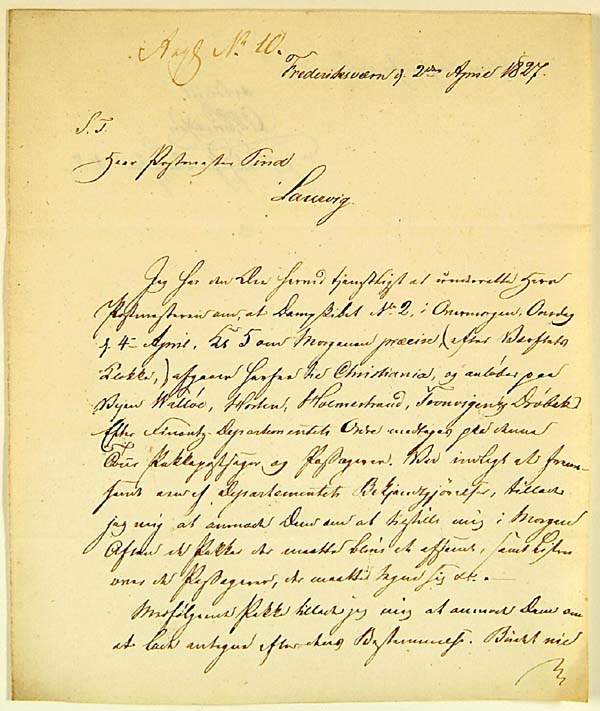 No 10.
Frederiksværn d. 2den April 1827.
S. T.
Herr Postmester Tind
Laurvig.
Jeg har den Ære herved tjenstligst at underrette Herr
Postmesteren om, at Dampskibet No 2, i Overmorgen, Onsdag
d. 4de April, Kl 5 om Morgenen præcise (efter Værftets
Klokke,) afgaaer herfra til Christiania, og anløber paa
Vejen Walløe, Horten, Holmestrand, Drøbak
Efter Finants Departementets Ordre medtages paa denne
Tour Pakkepostsager og Passagerer. Ved
Departementets Bekjendtgjørelse, tillader
jeg mig at anmode Dem om at tilstille mig i Morgen
Aften de Pakker der maatte blive at afsende, samt Listen
over de Passagerer, der maatte tegne sig etc. –
Medfølgende Pakke tillader jeg mig at anmode Dem om
at lade besørge efter dens Bestemmelse. ved